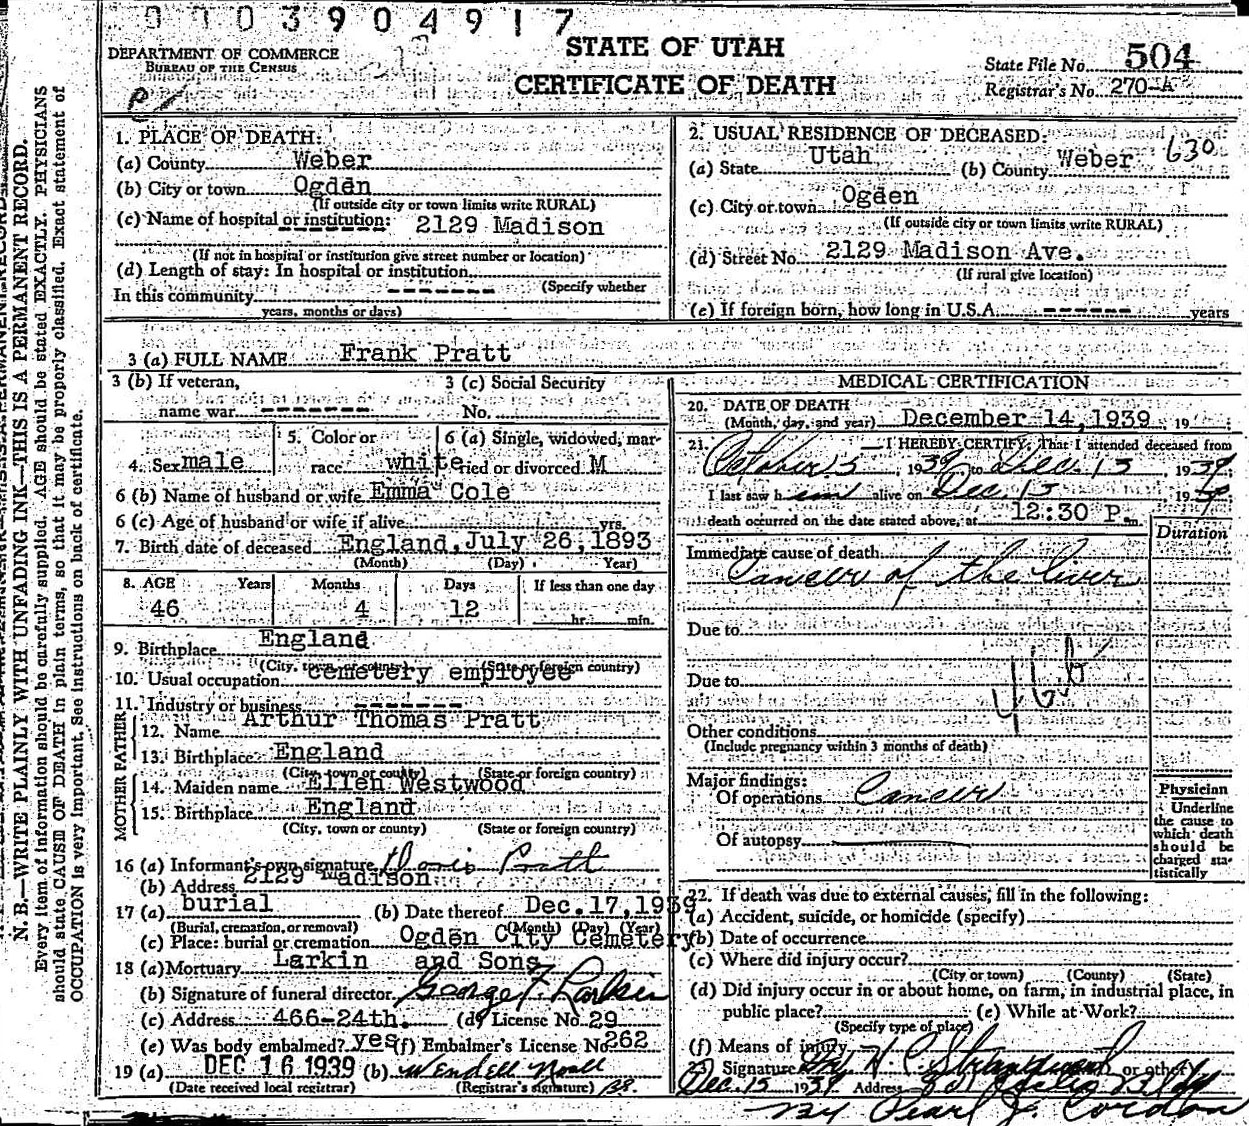 0003904917
DEPARTMENT OF COMMERCE
BUREAU OF THE CENSUS
STATE OF UTAH
CERTIFICATE OF DEATH
State File No. 504
Registrar's No. 270-A
1. PLACE OF DEATH:
(a) County Weber
(b) City or town Ogden
(If outside city or town limits write RURAL)
(c) Name of hospital or institution: 2129 Madison
(If not in hospital or institution give street number or location)
(d) Length of stay: In hospital or institution
(Specify whether
In this community -------
years, months or days)
2. USUAL RESIDENCE OF DECEASED: 630
(a) State Utah (b) County Weber
(c) City or town Ogden
(If outside city or town limits write RURAL)
(d) Street No. 2129 Madison Ave.
(If rural give location)
(e) If foreign born, how long in U.S.A. ------ years
3 (a) FULL NAME Frank Pratt
3 (b) If veteran, 3 (c) Social Security
name war ------- No.
4. Sex male 5. Color or race white 6 (a) Single, widowed, married or divorced M
6 (b) Name of husband or wife Emma Cole
6 (c) Age of husband or wife if alive yrs.
7. Birth date of deceased England, July 26, 1893
(Month) (Day) Year)
8. AGE Years Months Days If less than one day
46 4 12 hr. min.
9. Birthplace England
(City, town, or county) (State or foreign country)
10. Usual occupation cemetery employee
11. Industry or business -------
FATHER
12. Name Arthur Thomas Pratt
13. Birthplace England
(City, town or county) (State or foreign country)
MOTHER
14. Maiden name Ellen Westwood
15. Birthplace England
(City, town or county) (State or foreign country)
16 (a) Informant's own signature Pratt
(b) Address 2129 Madison
17 (a) burial (b) Date thereof Dec. 17, 1939
(Burial, cremation, or removal) (Month) (Day) (Year)
(c) Place: burial or cremation Ogden City Cemetery
18 (a) Mortuary Larkin and Sons
(b) Signature of funeral director George F. Larkin
(c) Address 466-24th. (d) License No. 29
(e) Was body embalmed? yes (f) Embalmer's License No. 262
19 (a) DEC 16 1939 (b) Wendell Noall
(Date received local registrar) (Registrar's signature)
MEDICAL CERTIFICATION
20. DATE OF DEATH
(Month, day, and year) December 14, 1939, 19
21. I HEREBY CERTIFY, That I attended deceased from
October 5, 1939, to Dec. 13 1939.
I last saw him alive on Dec. 13, 1939
death occurred on the date stated above, at 12:30 P. m.
Duration
Immediate cause of death
Cancer of the liver
Due to
Due to
46b
Other conditions
(Include pregnancy within 3 months of death)
Major findings:
Of operations Cancer
Of autopsy
Physician
Underline the cause to which death should be charged statistically
22. If death was due to external causes, fill in the following:
(a) Accident, suicide, or homicide (specify)
(b) Date of occurrence
(c) Where did injury occur?
(City or town) (County) (State)
(d) Did injury occur in or about home, on farm, in industrial place, in
public place? (e) While at Work?
(Specify type of place)
(f) Means of injury
23) Signature Dr. H C Strandquist or other)
Dec. 15 1939 Address
By Pearl J. Cordon
N. B.—WRITE PLAINLY WITH UNFADING INK—THIS IS A PERMANENT RECORD.
Every item of information should be carefully supplied. AGE should be stated EXACTLY. PHYSICIANS
should state CAUSE OF DEATH in plain terms, so that it may be properly classified. Exact statement of
OCCUPATION is very important. See instructions on back of certificate.